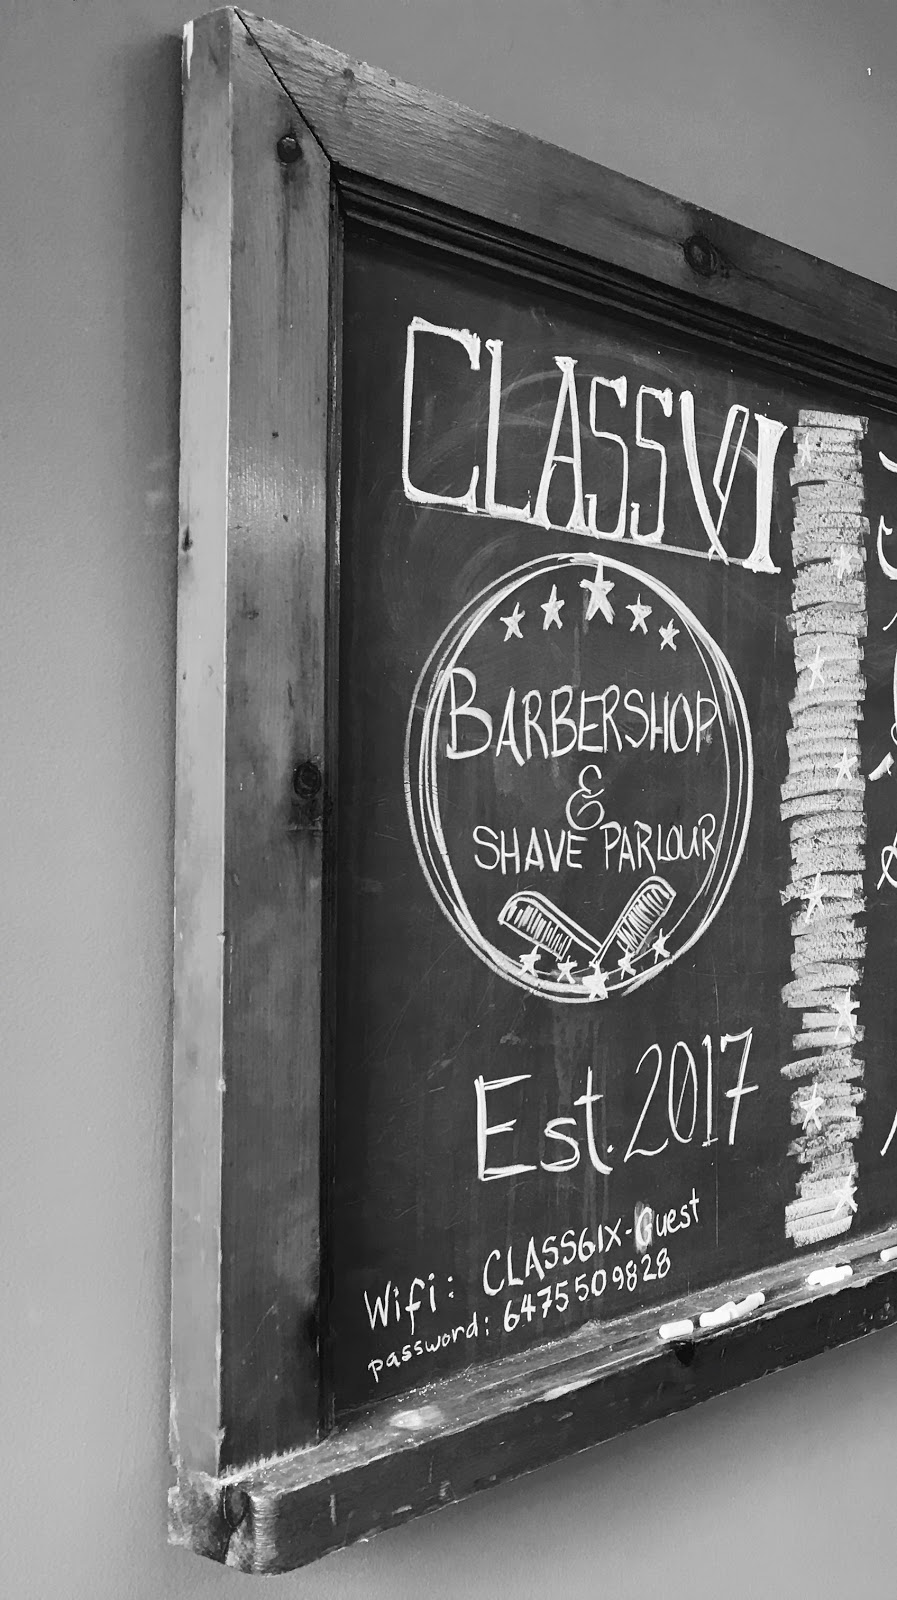 CLASSVI
BARBERSHOP
&
SHAVE PARLOUR
Est. 2017
Wifi: CLASS6IX-Guest
password: 6475509828